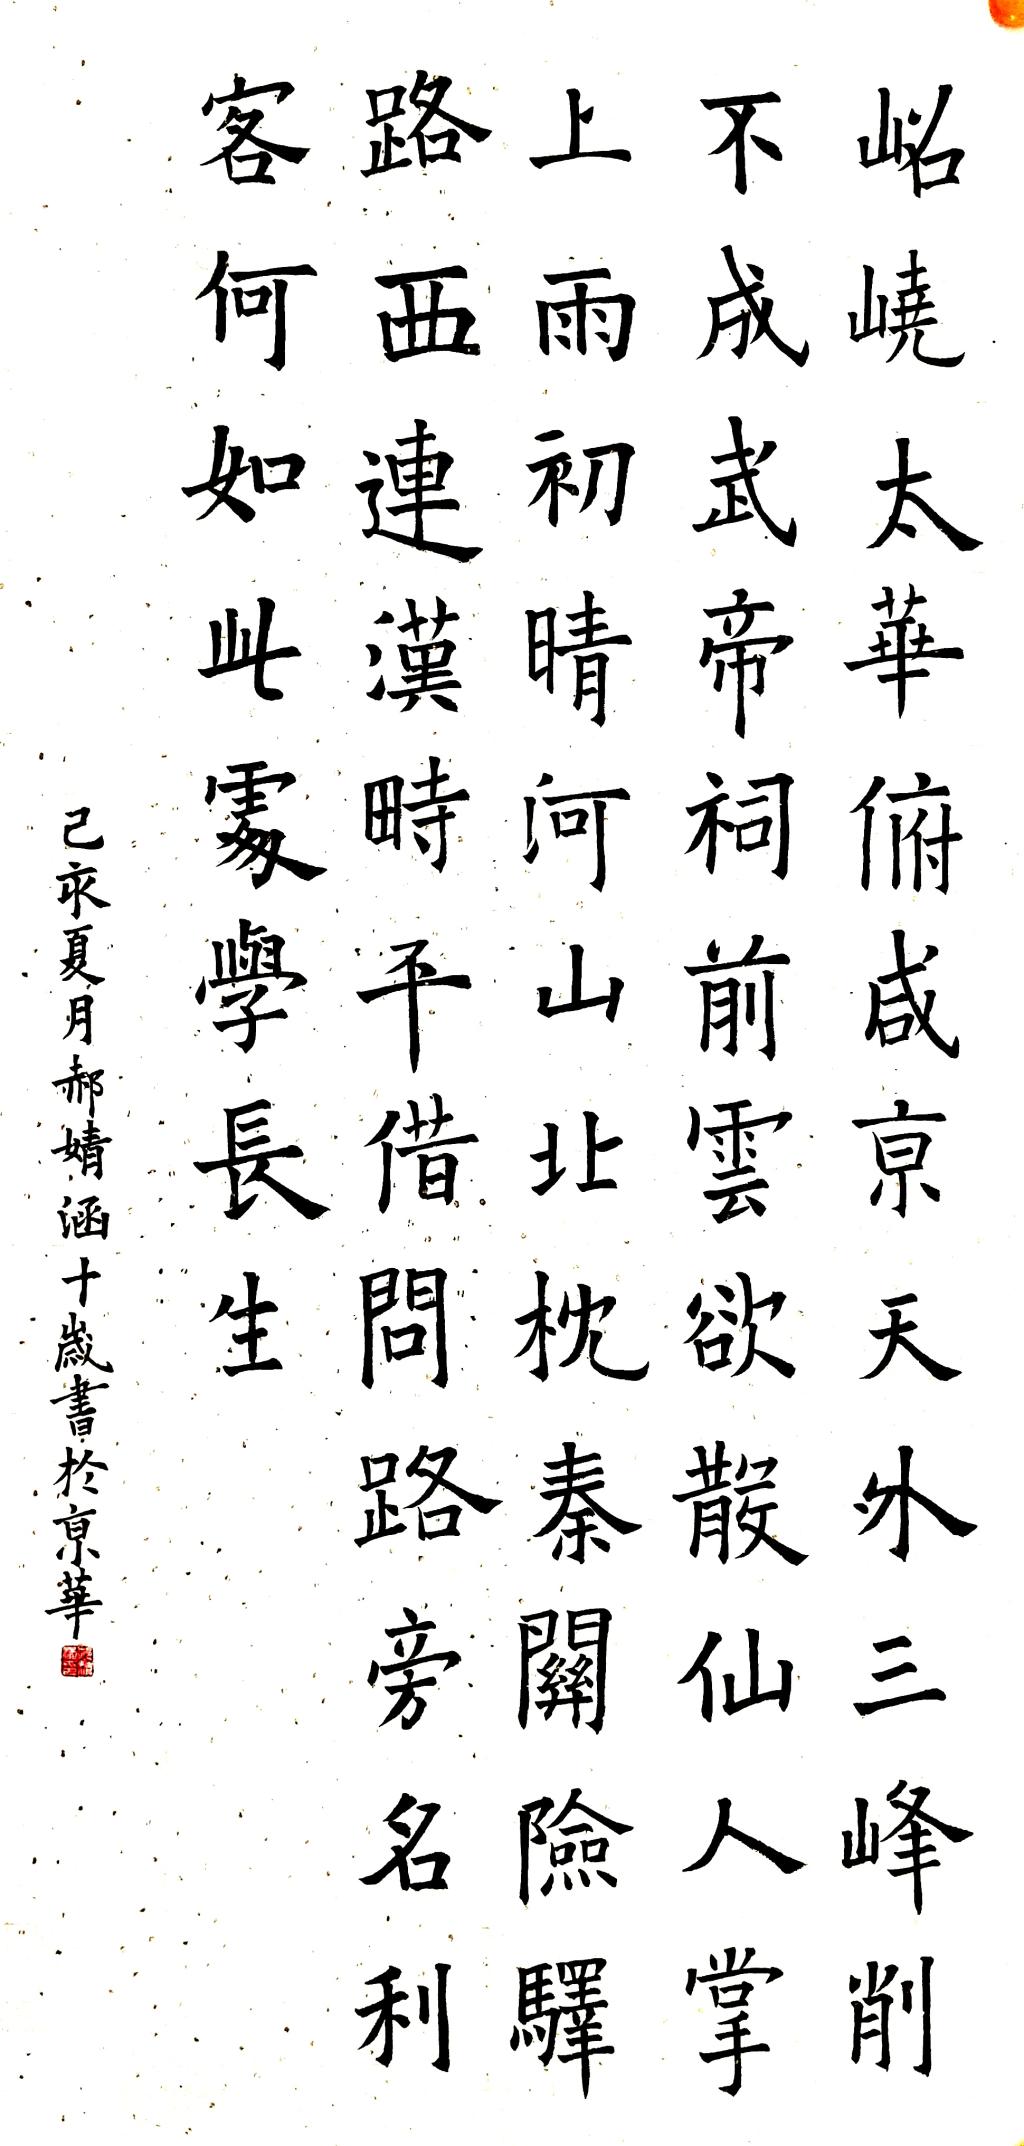 岹嶢太華俯咸亰天外三峰削
不成武帝祠前雲欲散仙人掌
上雨初晴河山北枕秦關險驛
路西連漢畤平借問路旁名利
客何如此處學長生
己亥夏月郝婧涵十歲書於亰華